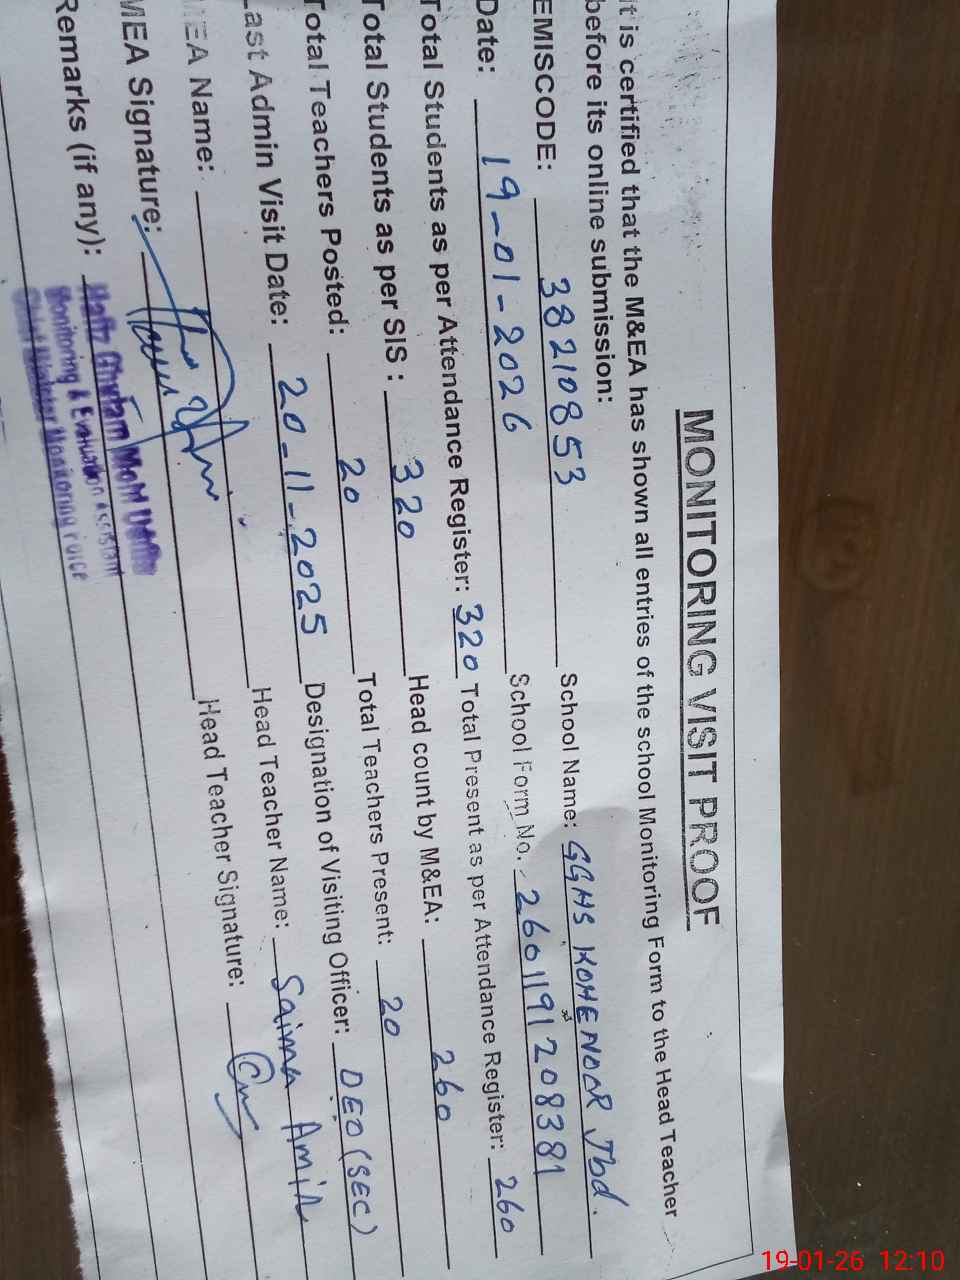 MONITORING VISIT PROOF
it is certified that the M&EA has shown all entries of the school Monitoring Form to the Head Teacher
before its online submission:
EMISCODE: 38210853 School Name: GGHS KOHENOOR Jbd.
Date: 19-01-2026 School Form No. 2601191208381
Total Students as per Attendance Register: 320 Total Present as per Attendance Register: 260
Total Students as per SIS : 320 Head count by M&EA: 260
Total Teachers Posted: 20 Total Teachers Present: 20
Last Admin Visit Date: 20-11-2025 Designation of Visiting Officer: DEO (SEC)
MEA Name: Head Teacher Name: Saima Amin
MEA Signature: Head Teacher Signature:
Remarks (if any):
Monitoring & Evaluation Assistant
Chief Minister Monitoring Force
19-01-26 12:10